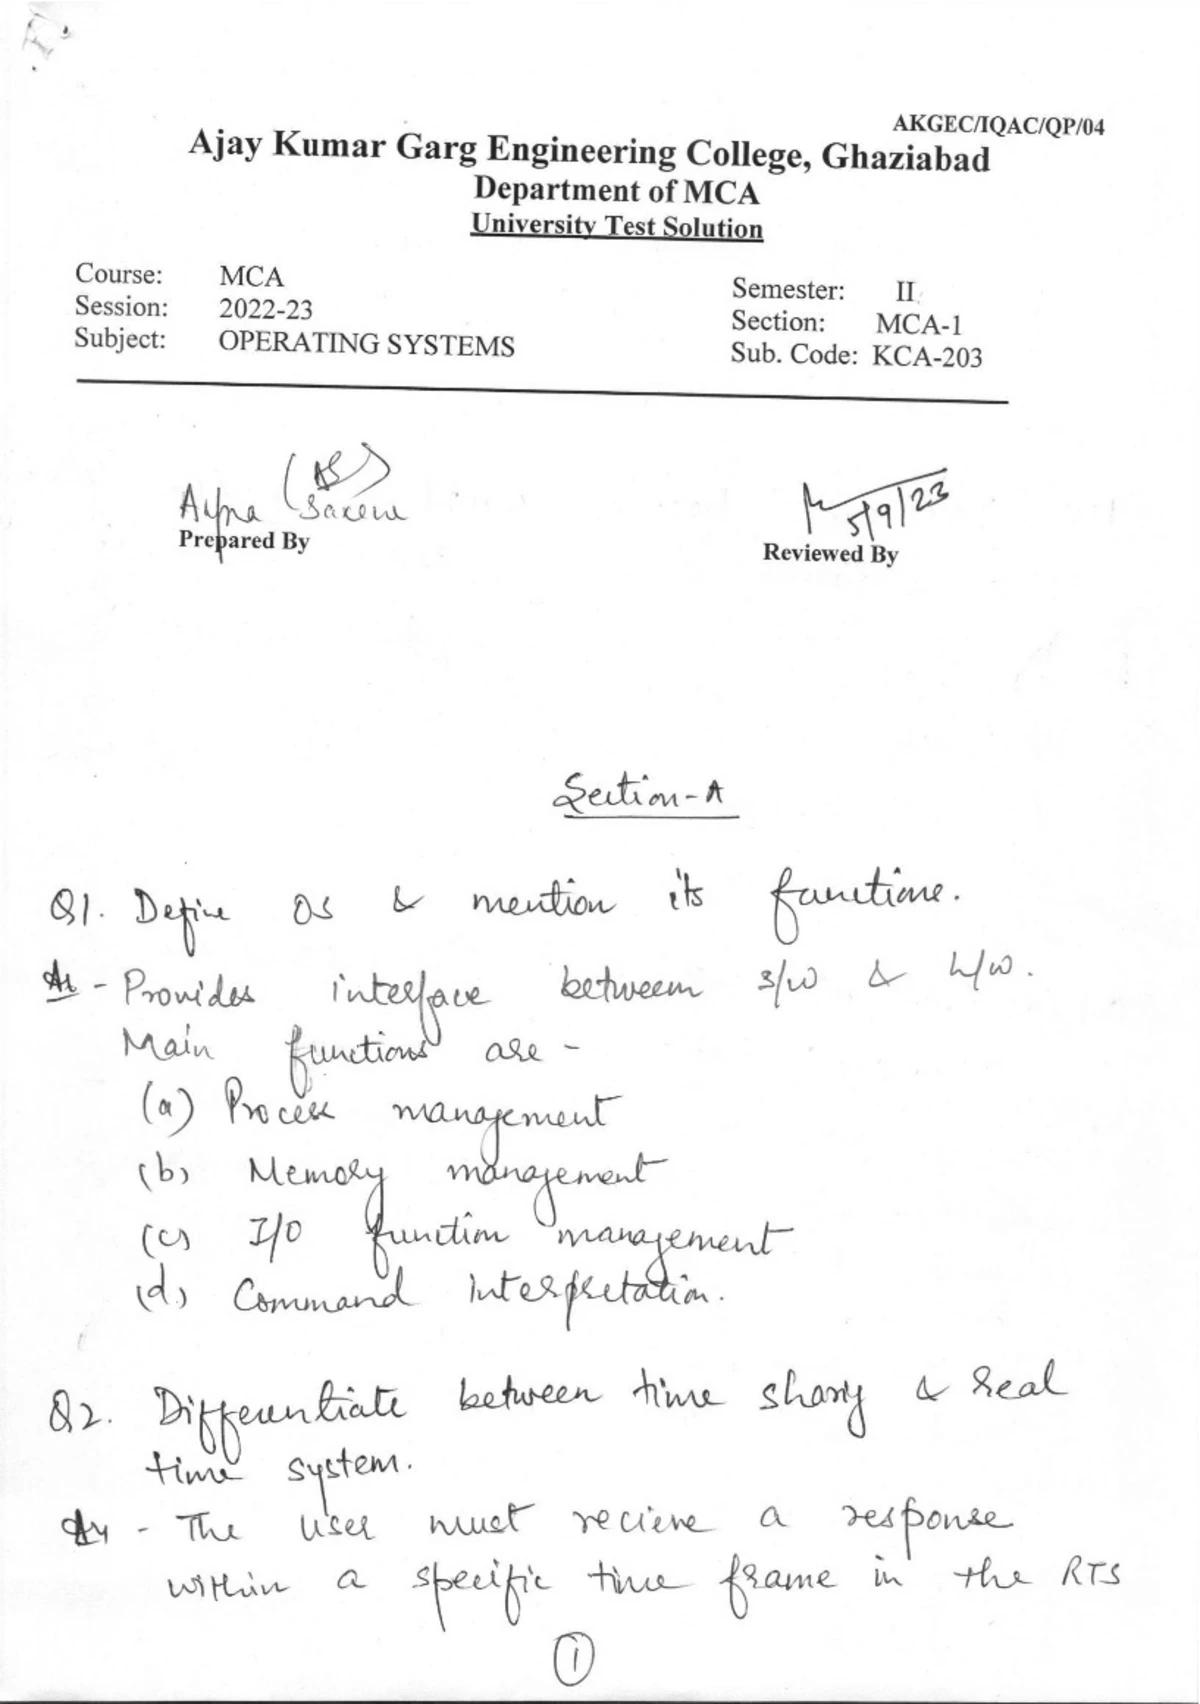 AKGEC/IQAC/QP/04
Ajay Kumar Garg Engineering College, Ghaziabad
Department of MCA
University Test Solution
Course: MCA
Session: 2022-23
Subject: OPERATING SYSTEMS
Semester: II
Section: MCA-1
Sub. Code: KCA-203
(AS)
Saxena
Prepared By
5/9/23
Reviewed By
Section-A
Q1. Define OS & mention its functions.
- Provides interface between s/w & h/w.
Main functions are -
(a) Process management
(b) Memory management
(c) I/O function management
(d) Command interpretation.
Q2. Differentiate between time sharing & real
time system.
- The user must recieve a response
within a specific time frame in the RTS
1